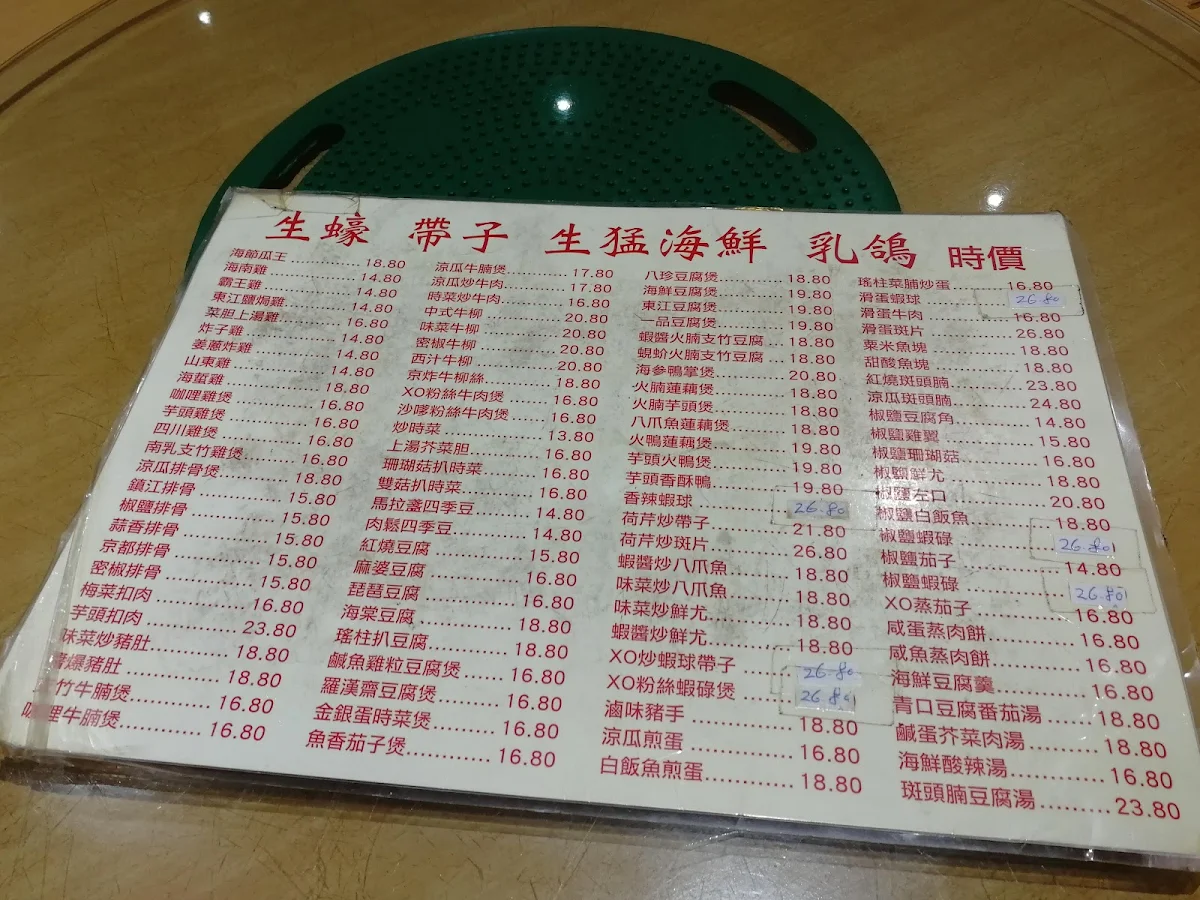 生蠔 帶子 生猛海鮮 乳鴿 時價
海節瓜王 18.80
海南雞 14.80
霸王雞 14.80
東江鹽焗雞 14.80
菜胆上湯雞 16.80
炸子雞 14.80
姜蔥炸雞 14.80
山東雞 14.80
海蜇雞 18.80
咖哩雞煲 16.80
芋頭雞煲 16.80
四川雞煲 16.80
南乳支竹雞煲 16.80
涼瓜排骨煲 18.80
鎮江排骨 15.80
椒鹽排骨 15.80
蒜香排骨 15.80
京都排骨 15.80
密椒排骨 15.80
梅菜扣肉 16.80
芋頭扣肉 23.80
味菜炒豬肚 18.80
爆豬肚 18.80
竹牛腩煲 16.80
咖哩牛腩煲 16.80
涼瓜牛腩煲 17.80
涼瓜炒牛肉 17.80
時菜炒牛肉 16.80
中式牛柳 20.80
味菜牛柳 20.80
密椒牛柳 20.80
西汁牛柳 20.80
京炸牛柳絲 18.80
XO粉絲牛肉煲 16.80
沙嗲粉絲牛肉煲 16.80
炒時菜 13.80
上湯芥菜胆 16.80
珊瑚菇扒時菜 16.80
雙菇扒時菜 16.80
馬拉盞四季豆 14.80
肉鬆四季豆 14.80
紅燒豆腐 15.80
麻婆豆腐 16.80
琵琶豆腐 16.80
海棠豆腐 18.80
瑤柱扒豆腐 18.80
鹹魚雞粒豆腐煲 16.80
羅漢齋豆腐煲 16.80
金銀蛋時菜煲 16.80
魚香茄子煲 16.80
八珍豆腐煲 18.80
海鮮豆腐煲 19.80
東江豆腐煲 19.80
一品豆腐煲 19.80
蝦醬火腩支竹豆腐 18.80
蜆蚧火腩支竹豆腐 18.80
海參鴨掌煲 20.80
火腩蓮藕煲 18.80
火腩芋頭煲 18.80
八爪魚蓮藕煲 18.80
火鴨蓮藕煲 19.80
芋頭火鴨煲 19.80
芋頭香酥鴨 19.80
香辣蝦球 26.80
荷芹炒帶子 21.80
荷芹炒斑片 26.80
蝦醬炒八爪魚 18.80
味菜炒八爪魚 18.80
味菜炒鮮尤 18.80
蝦醬炒鮮尤 18.80
XO炒蝦球帶子 26.80
XO粉絲蝦碌煲 26.80
滷味豬手 18.80
涼瓜煎蛋 16.80
白飯魚煎蛋 18.80
瑤柱菜脯炒蛋 16.80
滑蛋蝦球 26.80
滑蛋牛肉 16.80
滑蛋斑片 26.80
粟米魚塊 18.80
甜酸魚塊 18.80
紅燒斑頭腩 23.80
涼瓜斑頭腩 24.80
椒鹽豆腐角 14.80
椒鹽雞翼 15.80
椒鹽珊瑚菇 16.80
椒鹽鮮尤 18.80
椒鹽左口 20.80
椒鹽白飯魚 18.80
椒鹽蝦碌 26.80
椒鹽茄子 14.80
椒鹽蝦碌 26.80
XO蒸茄子 16.80
咸蛋蒸肉餅 16.80
咸魚蒸肉餅 16.80
海鮮豆腐羹 16.80
青口豆腐番茄湯 18.80
鹹蛋芥菜肉湯 18.80
海鮮酸辣湯 16.80
斑頭腩豆腐湯 23.80